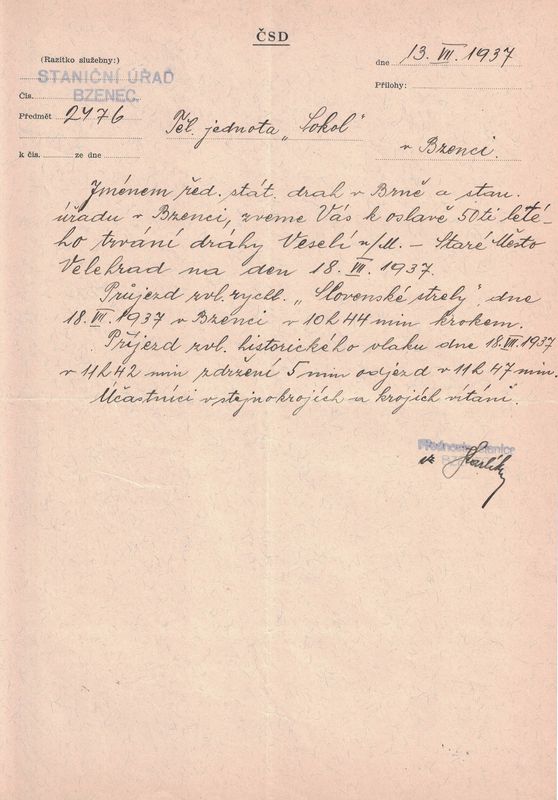 ČSD
(Razítko služebny:)
STANIČNÍ ÚŘAD
BZENEC.
dne 13. VII. 1937
Čís.
Přílohy:
Předmět 2476
Těl. jednota „Sokol"
v Bzenci.
k čís. ze dne
Jménem řed. stát. drah v Brně a stan.
úřadu v Bzenci, zveme Vás k oslavě 50ti leté-
ho trvání dráhy Veselí n/M. – Staré Město
Velehrad na den 18. VII. 1937.
Průjezd zvl. rychl. „Slovenské strely" dne
18. VII. 1937 v Bzenci v 10h 44 min krokem.
Příjezd zvl. historického vlaku dne 18. VII. 1937
v 11h 42 min zdržení 5 min odjezd v 11h 47 min.
Účastníci v stejnokrojích a krojích vítáni.
Přednosta stanice
BZENEC